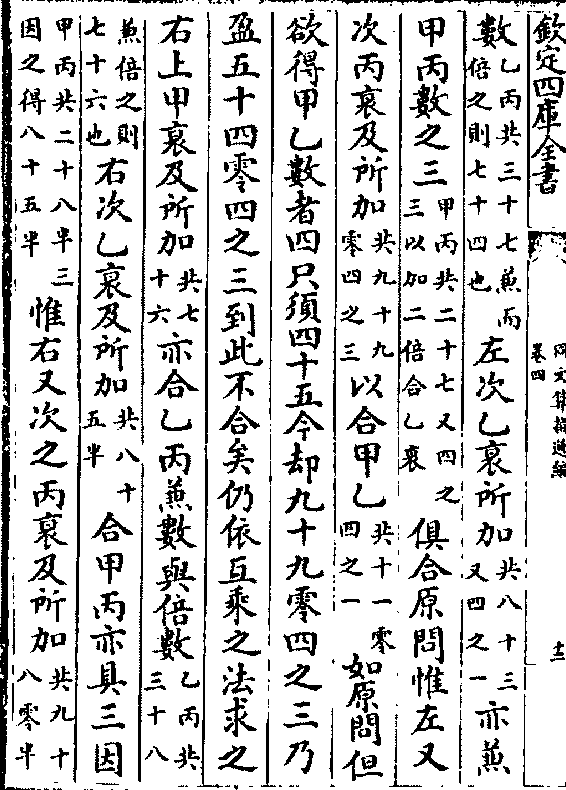 欽定四庫全書
同文算指通編
卷四
十二
數乙丙共三十七兼而倍之則七十四也左次乙衰所加共八十三又四之一亦兼
甲丙數之三甲丙共二十七又四之三以加二倍合乙衰俱合原問惟左又
次丙衰及所加共九十九零四之三以合甲乙共十一零四之一如原問但
欲得甲乙數者四只須四十五今却九十九零四之三乃
盈五十四零四之三到此不合矣仍依互乘之法求之
右上甲衰及所加共七十六亦合乙丙兼數與倍數乙丙共三十八
兼倍之則七十六也右次乙衰及所加共八十五半合甲丙亦具三因
甲丙共二十八半三因之得八十五半惟右又次之丙衰及所加共九十八零半